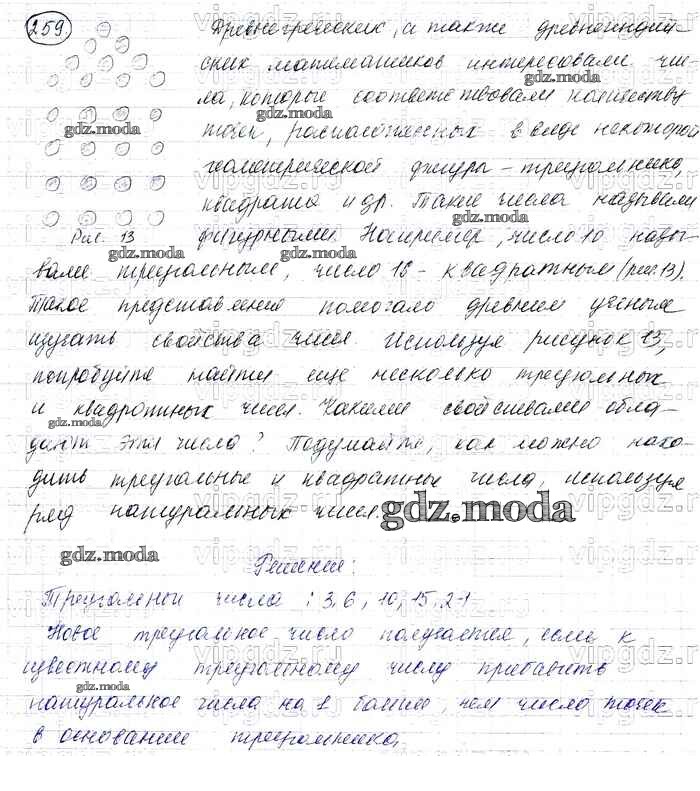 259
Древнегреческих, а также древнеиндий-
ских математиков интересовали чис-
ла, которые соответствовали количеству
точек, расположенных в виде некоторой
геометрической фигуры - треугольника,
квадрата и др. Такие числа называли
Рис. 13 фигурными. Например, число 10 назы-
вали треугольным, число 16 - квадратным (рис. 13).
Такое представление помогало древним ученым
изучать свойства чисел. Используя рисунок 13,
попробуйте найти еще несколько треугольных
и квадратных чисел. Какими свойствами обла-
дают эти числа? Подумайте, как можно нахо-
дить треугольные и квадратные числа, используя
ряд натуральных чисел.
Решение:
Треугольный числа: 3, 6, 10, 15, 21
Новое треугольное число получается, если к
известному треугольному числу прибавить
натуральное числа на 1 больше, чем число точек
в основании треугольника.
gdz.moda
vipgdz.ru